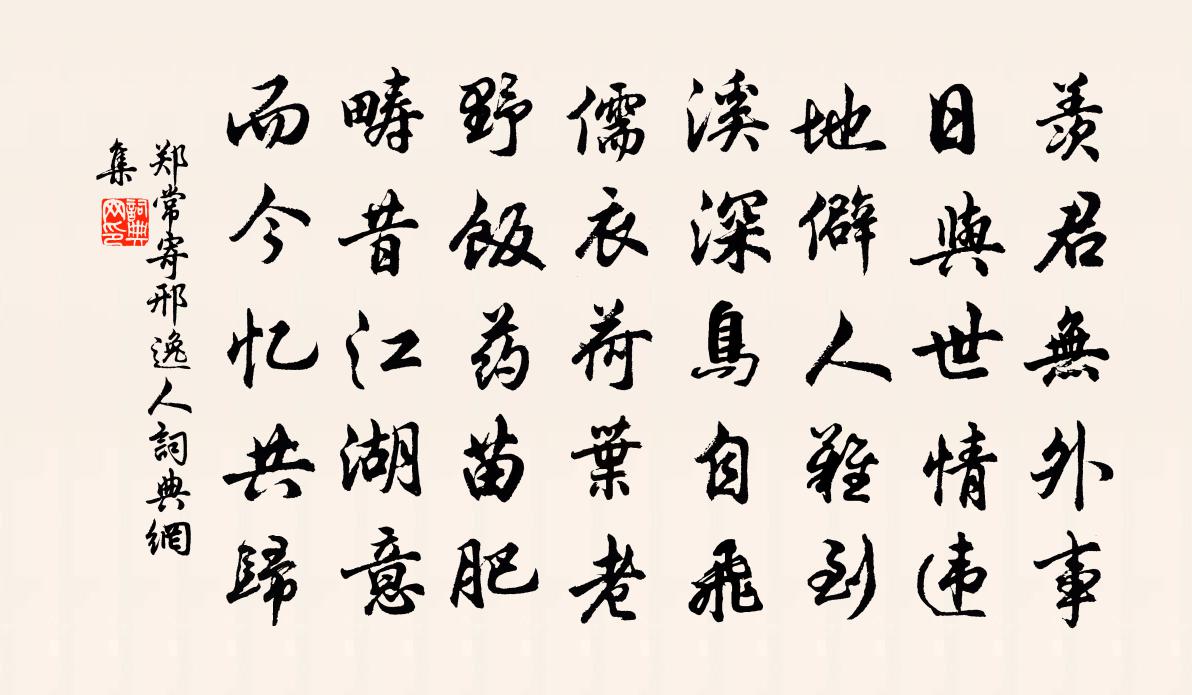 羨君無外事
日與世情违
地僻人難到
溪深鳥自飛
儒衣荷葉老
野飯药苗肥
疇昔江湖意
而今忆共歸
郑常寄邢逸人詞典網
集
詞典
网印